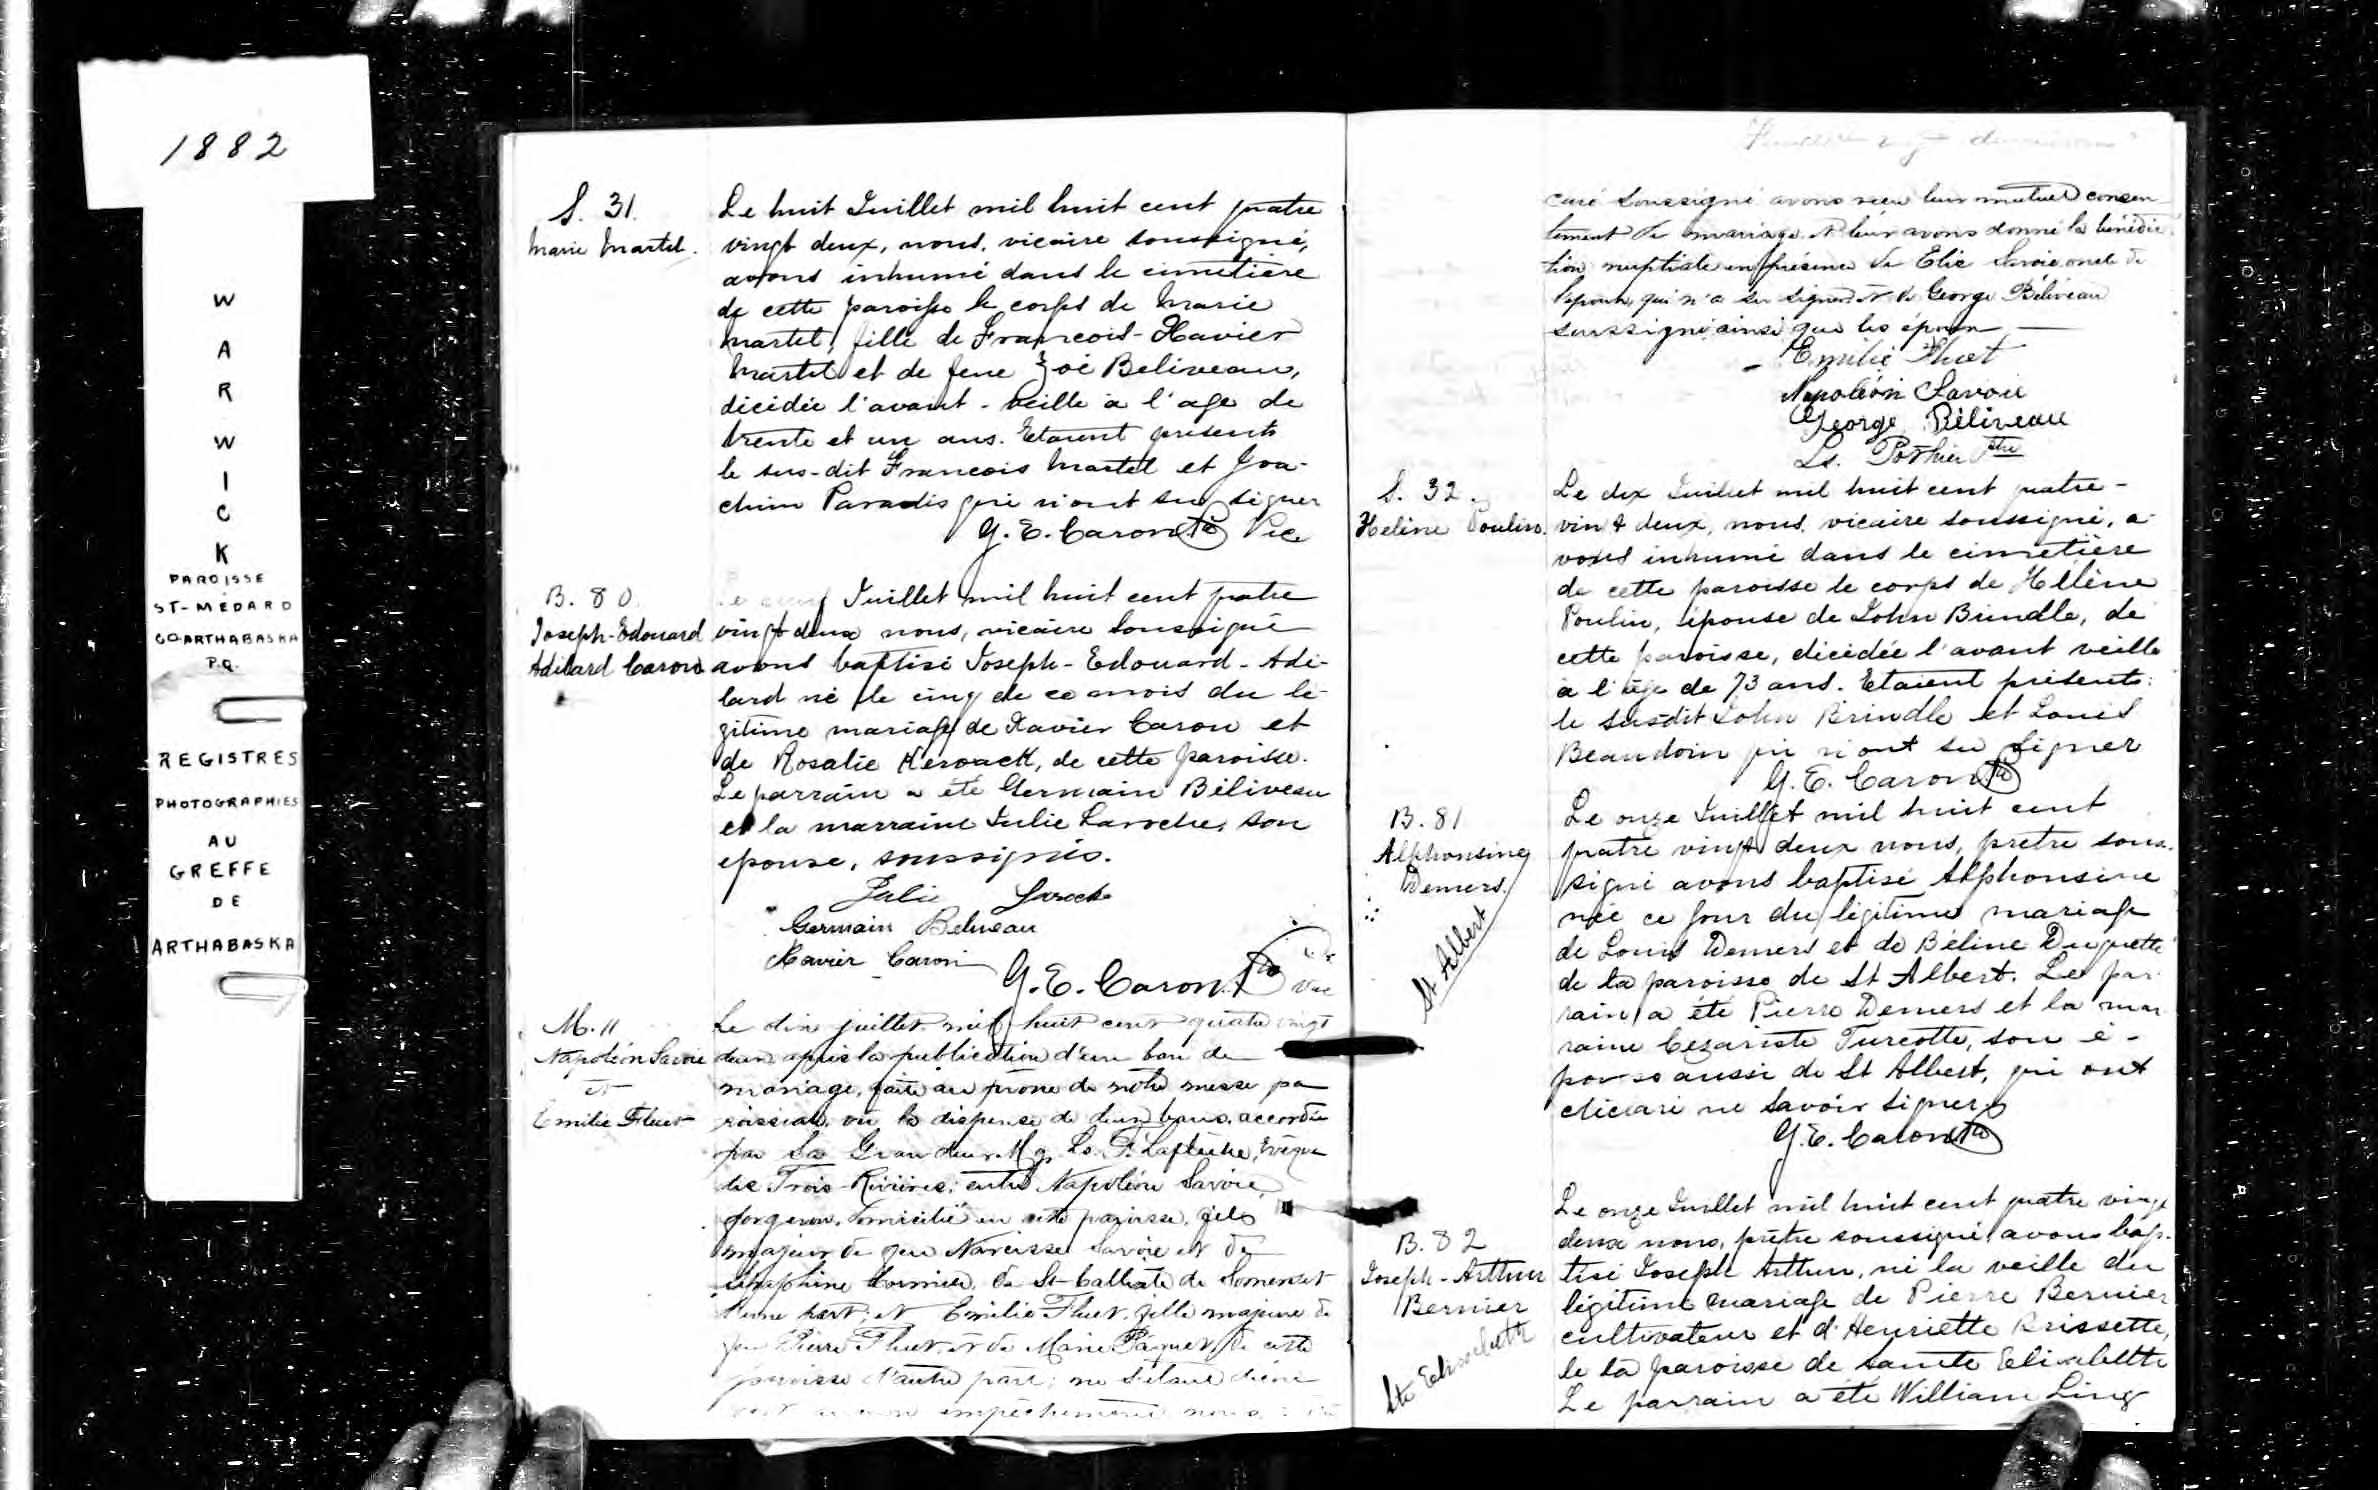 1882
WARWICK
PAROISSE
ST-MEDARD
CO ARTHABASKA
P.Q.
REGISTRES
PHOTOGRAPHIES
AU
GREFFE
DE
ARTHABASKA
S. 31.
Marie Martel.
Le huit Juillet mil huit cent quatre
vingt deux, nous, vicaire soussigné,
avons inhumé dans le cimetière
de cette paroisse le corps de Marie
Martel, fille de Francois-Xavier
Martel et de feue Zoé Beliveau,
décédée l'avant-veille à l'age de
trente et un ans. Etaient présents
le sus-dit Francois Martel et Joa-
chim Paradis qui n'ont su signer
G. E. Caron Ptre Vic
B. 80
Joseph-Edouard
Adélard Caron
Juillet mil huit cent quatre
vingt deux nous, vicaire soussigné
avons baptisé Joseph-Edouard-Adé-
lard né le cinq de ce mois du lé-
gitime mariage de Xavier Caron et
de Rosalie Kerouack, de cette paroisse.
Le parrain a été Germain Béliveau
et la marraine Julie Laroche, son
epouse, soussignés.
Julie Laroche
Germain Beliveau
Xavier Caron
G. E. Caron Ptre Vic
M. 11
Napoléon Savoie
et
Emilie Fluet
Le dix juillet mil huit cent quatre vingt
deux après la publication d'un ban de
mariage, faite au prône de notre messe pa
roissiale, vu la dispense de deux bans accordée
par Sa Grandeur Mgr Ls. F. Laflèche, Evêque
des Trois-Rivières; entre Napoléon Savoie,
forgeron, domicilié en cette paroisse, fils
majeur de feu Narcisse Savoie et de
Séraphine Cormier, de St-Calixte de Somerset
d'une part; et Emilie Fluet, fille majeure de
feu Pierre Fluet et de Marie Paquet, de cette
paroisse d'autre part; ne s'étant décou
vert aucun empêchement nous
curé soussigné avons reçu leur mutuel consen
tement de mariage et leur avons donné la bénédic
tion nuptiale en présence de Elie Savoie oncle de
l'époux qui n'a su signer et de George Béliveau
soussigné ainsi que les époux
Emilie Fluet
Napoléon Savoie
George Béliveau
Ls. Pothier Ptre
S. 32.
Helène Poulin.
Le dix Juillet mil huit cent quatre-
vingt deux, nous, vicaire soussigné, a-
vons inhumé dans le cimetière
de cette paroisse le corps de Hélène
Poulin, épouse de John Brindle, de
cette paroisse, décédée l'avant veille
à l'age de 73 ans. Etaient présents:
le susdit John Brindle et Louis
Beaudoin qui n'ont su signer
G. E. Caron Ptre
B. 81
Alphonsine
Demers.
St Albert
Le onze Juillet mil huit cent
quatre vingt deux nous, prêtre sous-
signé avons baptisé Alphonsine
née ce jour du légitime mariage
de Louis Demers et de Béline Duquette
de la paroisse de St Albert. Le par-
rain a été Pierre Demers et la mar
raine Cézariste Turcotte, son é-
pouse aussi de St Albert, qui ont
déclaré ne savoir signer
G. E. Caron Ptre
B. 82
Joseph-Arthur
Bernier
Ste Elisabeth
Le onze Juillet mil huit cent quatre vingt
deux nous, prêtre soussigné avons bap-
tisé Joseph Arthur, né la veille du
légitime mariage de Pierre Bernier
cultivateur et d'Henriette Brissette,
de la paroisse de Sainte Elisabeth
Le parrain a été William Ling